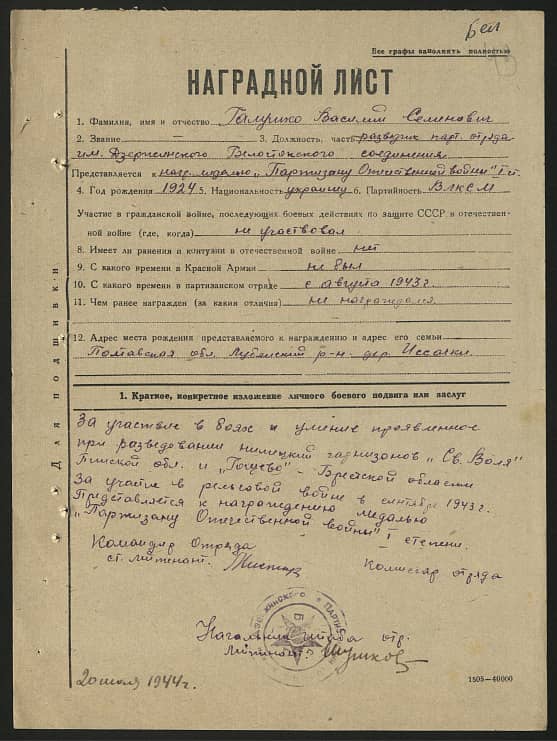 Бел
Все графы заполнять полностью
НАГРАДНОЙ ЛИСТ
1. Фамилия, имя и отчество Галушко Василий Семенович
2. Звание — 3. Должность, часть разведчик парт. отряда
им. Дзержинского Белостокского соединения
Представляется к нагр. медалью „Партизану Отечественной войны" I ст.
4. Год рождения 1924 5. Национальность украинц 6. Партийность ВЛКСМ
Участие в гражданской войне, последующих боевых действиях по защите СССР и отечествен-
ной войне (где, когда) не участвовал
8. Имеет ли ранения и контузии в отечественной войне нет
9. С какого времени в Красной Армии не был
10. С какого времени в партизанском отряде с августа 1943 г.
11. Чем ранее награжден (за какия отличия) не награждался
12. Адрес места рождения представляемого к награждению и адрес его семьи
Полтавская обл. Лубянский р-н. дер. Иссачки
Для подшивки
1. Краткое, конкретное изложение личного боевого подвига или заслуг
За участие в боях и умение проявленное
при разведовании нимецких гарнизонов „Св. Воля"
Пинской обл. и - Брестской области
За участие в рельсовой войне в сентябре 1943 г.
Представляется к награждению медалью
„Партизану Отечественной войны" I степени.
Командир Отряда
ст. лейтенант.
Комиссар отряда
Начальник штаба отр.
Лейтенант
20 июля 1944 г.
1505—40000